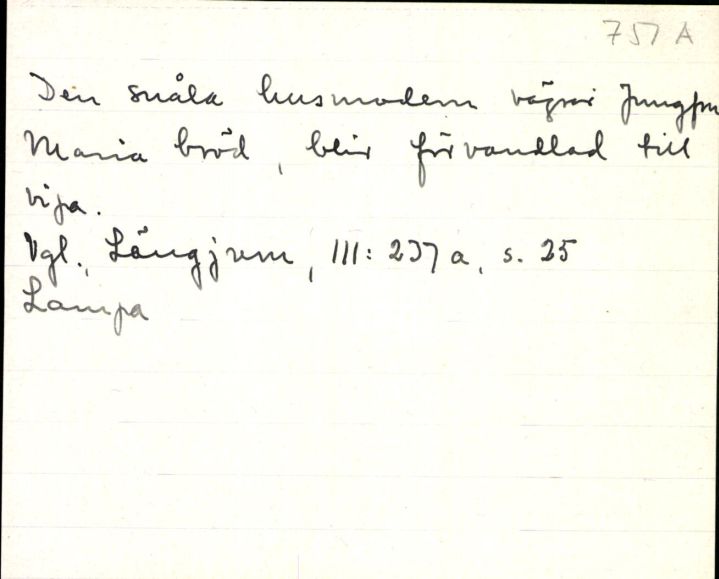 757 A
Den snåla husmodern vägrar Jungfru
Maria bröd, blir förvandlad till
vipa.
Vgl., Långjum, III: 237 a, s. 25
Lampa